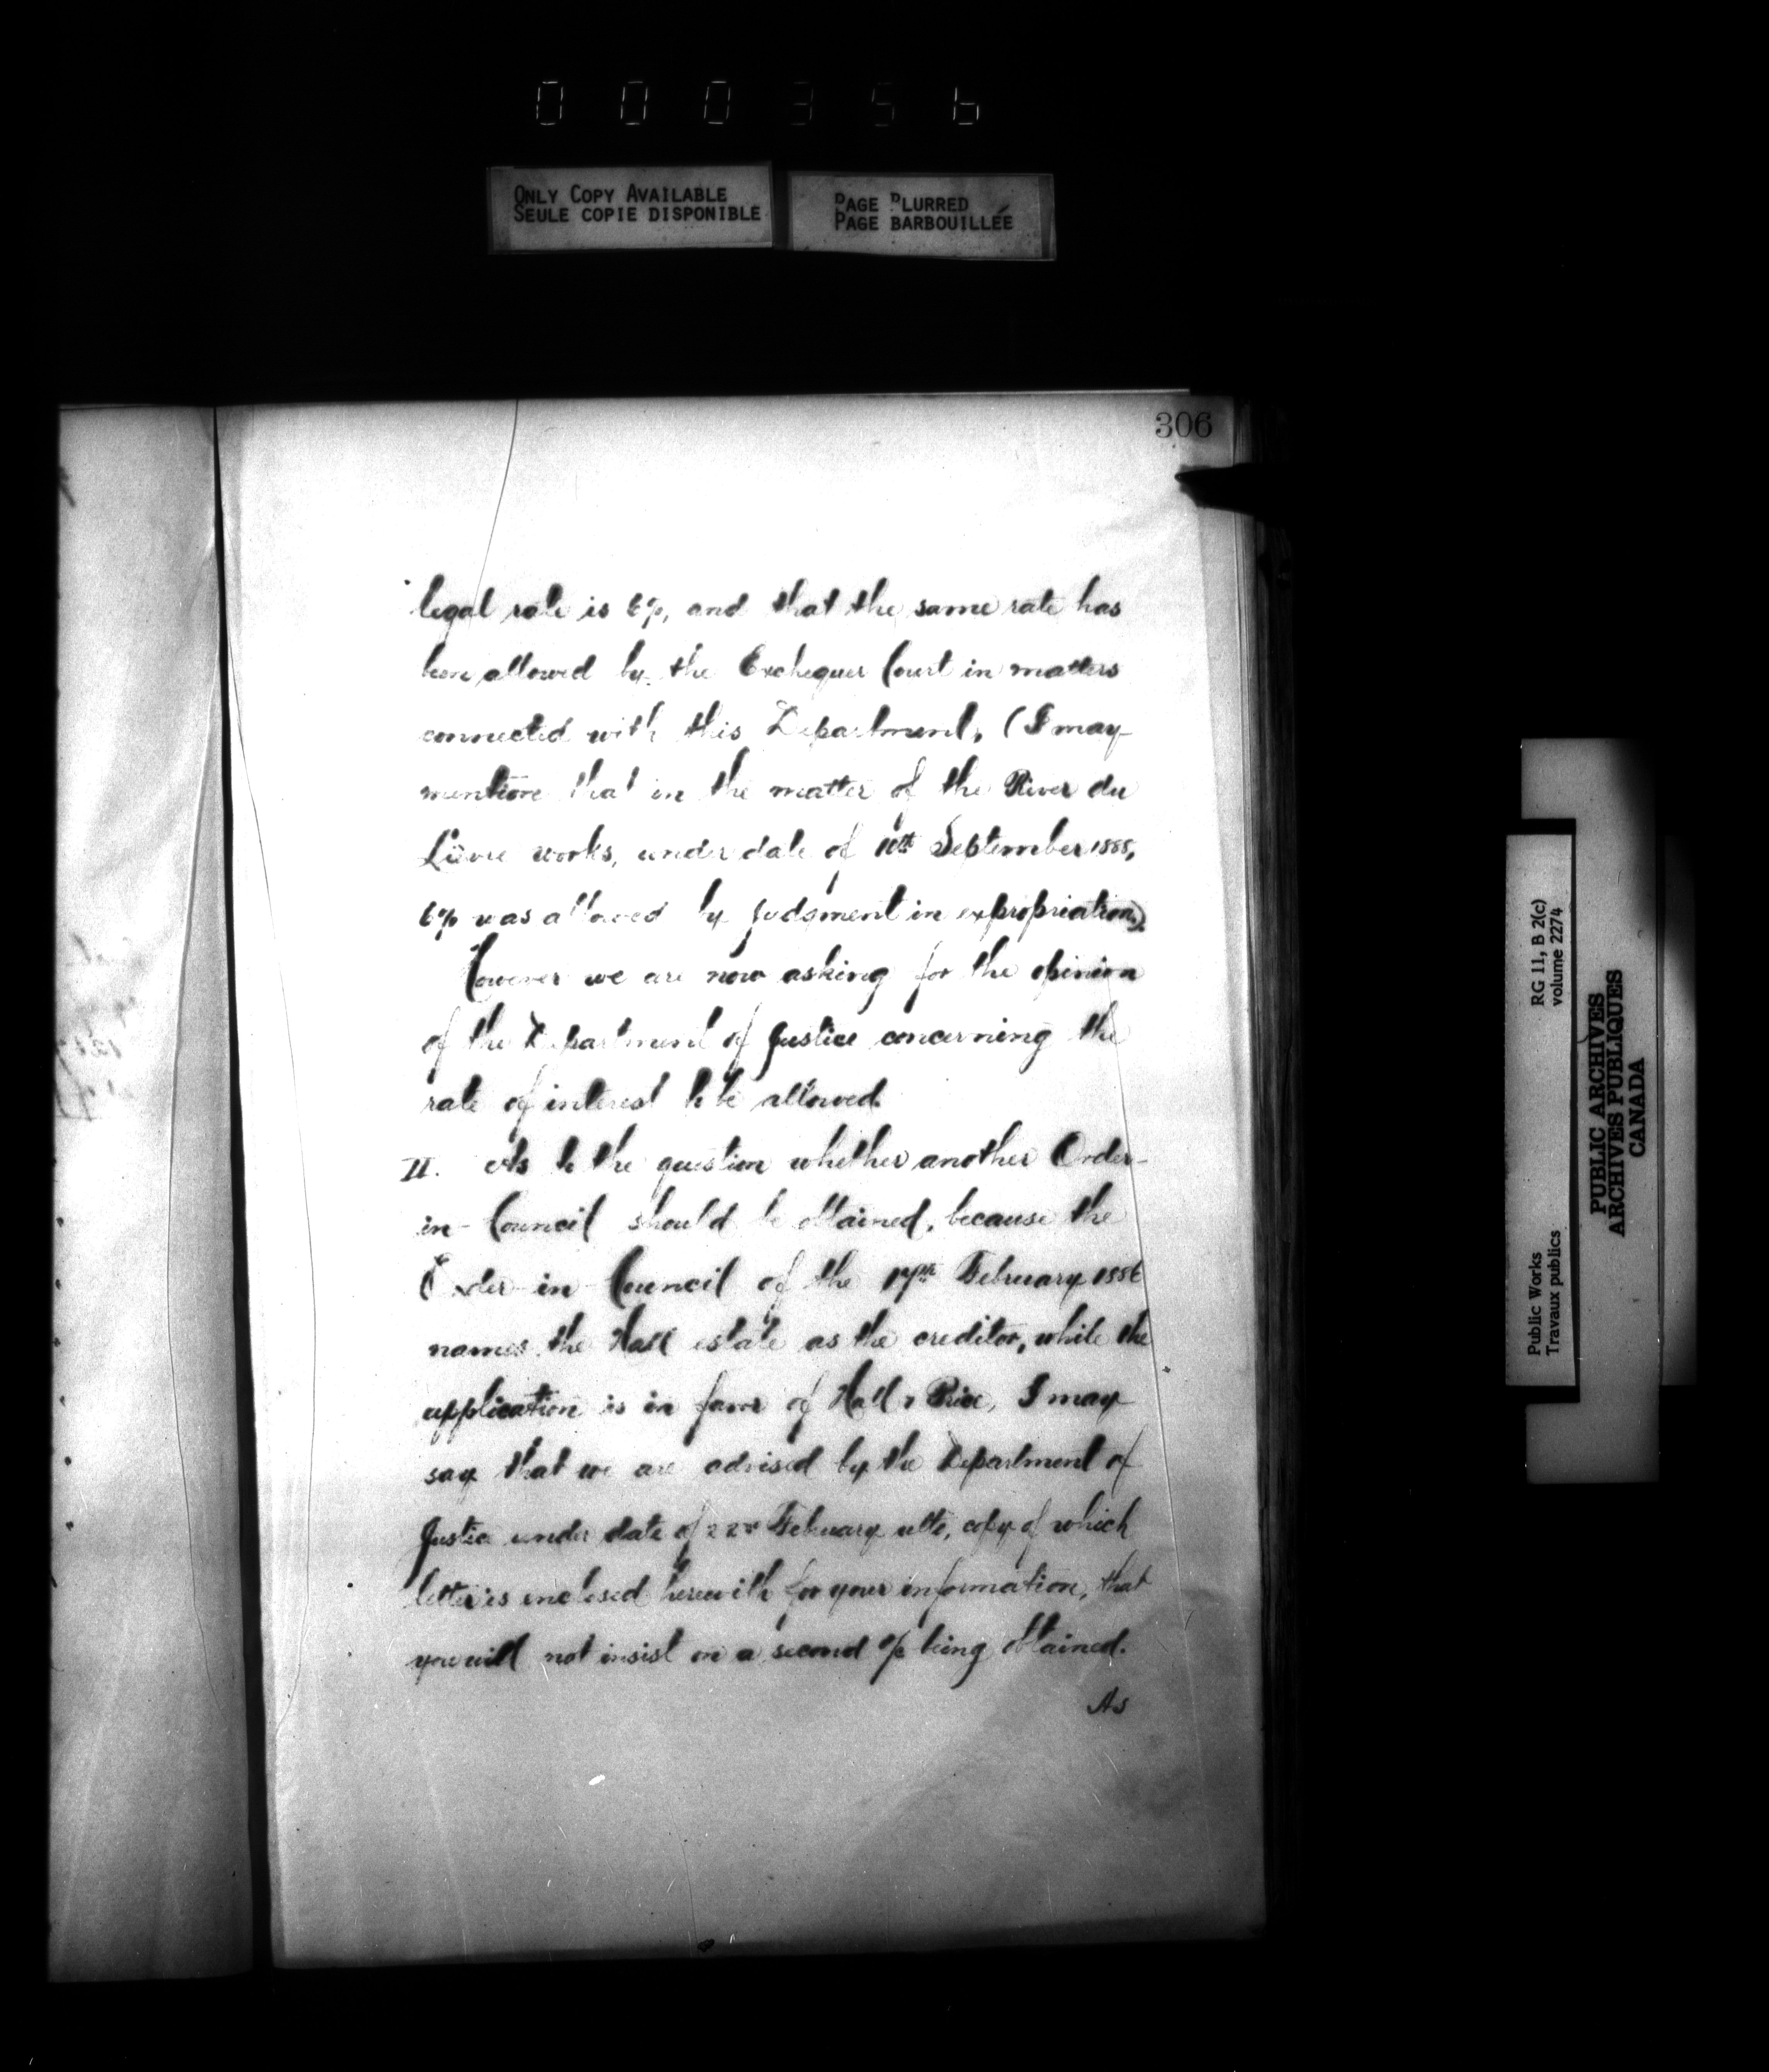 000356
ONLY COPY AVAILABLE
SEULE COPIE DISPONIBLE
PAGE BLURRED
PAGE BARBOUILLÉE
306
legal rate is 6%, and that the same rate has
been allowed by the Exchequer Court in matters
connected with this Department, (I may
mention that in the matter of the River du
Lièvre works, under date of September 1885,
6% was allowed by Judgment in expropriation).
However we are now asking for the opinion
of the Department of Justice concerning the
rate of interest to be allowed.
II. As to the question whether another Order-
in-Council should be obtained, because the
Order-in-Council of the 17th February 1886
names the Hall estate as the creditor, while the
application is in favor of Hall & Price, I may
say that we are advised by the Department of
Justice under date of 22nd February ulto, copy of which
letter is enclosed herewith for your information, that
you will not insist on a second o/c being obtained.
As
RG 11, B 2(c)
volume 2274
Public Works
Travaux publics
PUBLIC ARCHIVES
ARCHIVES PUBLIQUES
CANADA